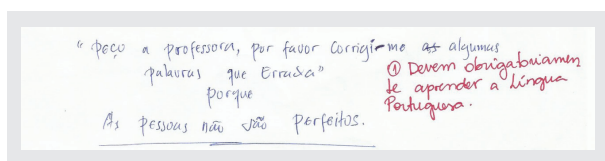 “peço a professora, por favor Corrigir-me as algumas
palavras que Errada”
porque
As pessoas não são perfeitos.
① Devem obrigatoriamen
te aprender a Língua
Portuguesa.